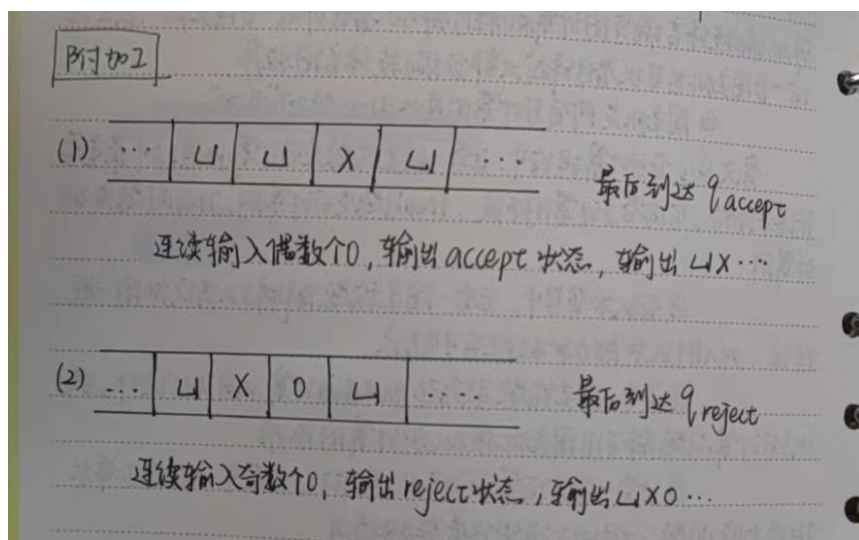 附加工
(1) ... ⊔ ⊔ X ⊔ ...
最后到达 q accept
连续输入偶数个0, 输出accept 状态, 输出 ⊔X...
(2) ... ⊔ X 0 ⊔ ....
最后到达 q reject
连续输入奇数个0, 输出reject状态, 输出⊔X0...